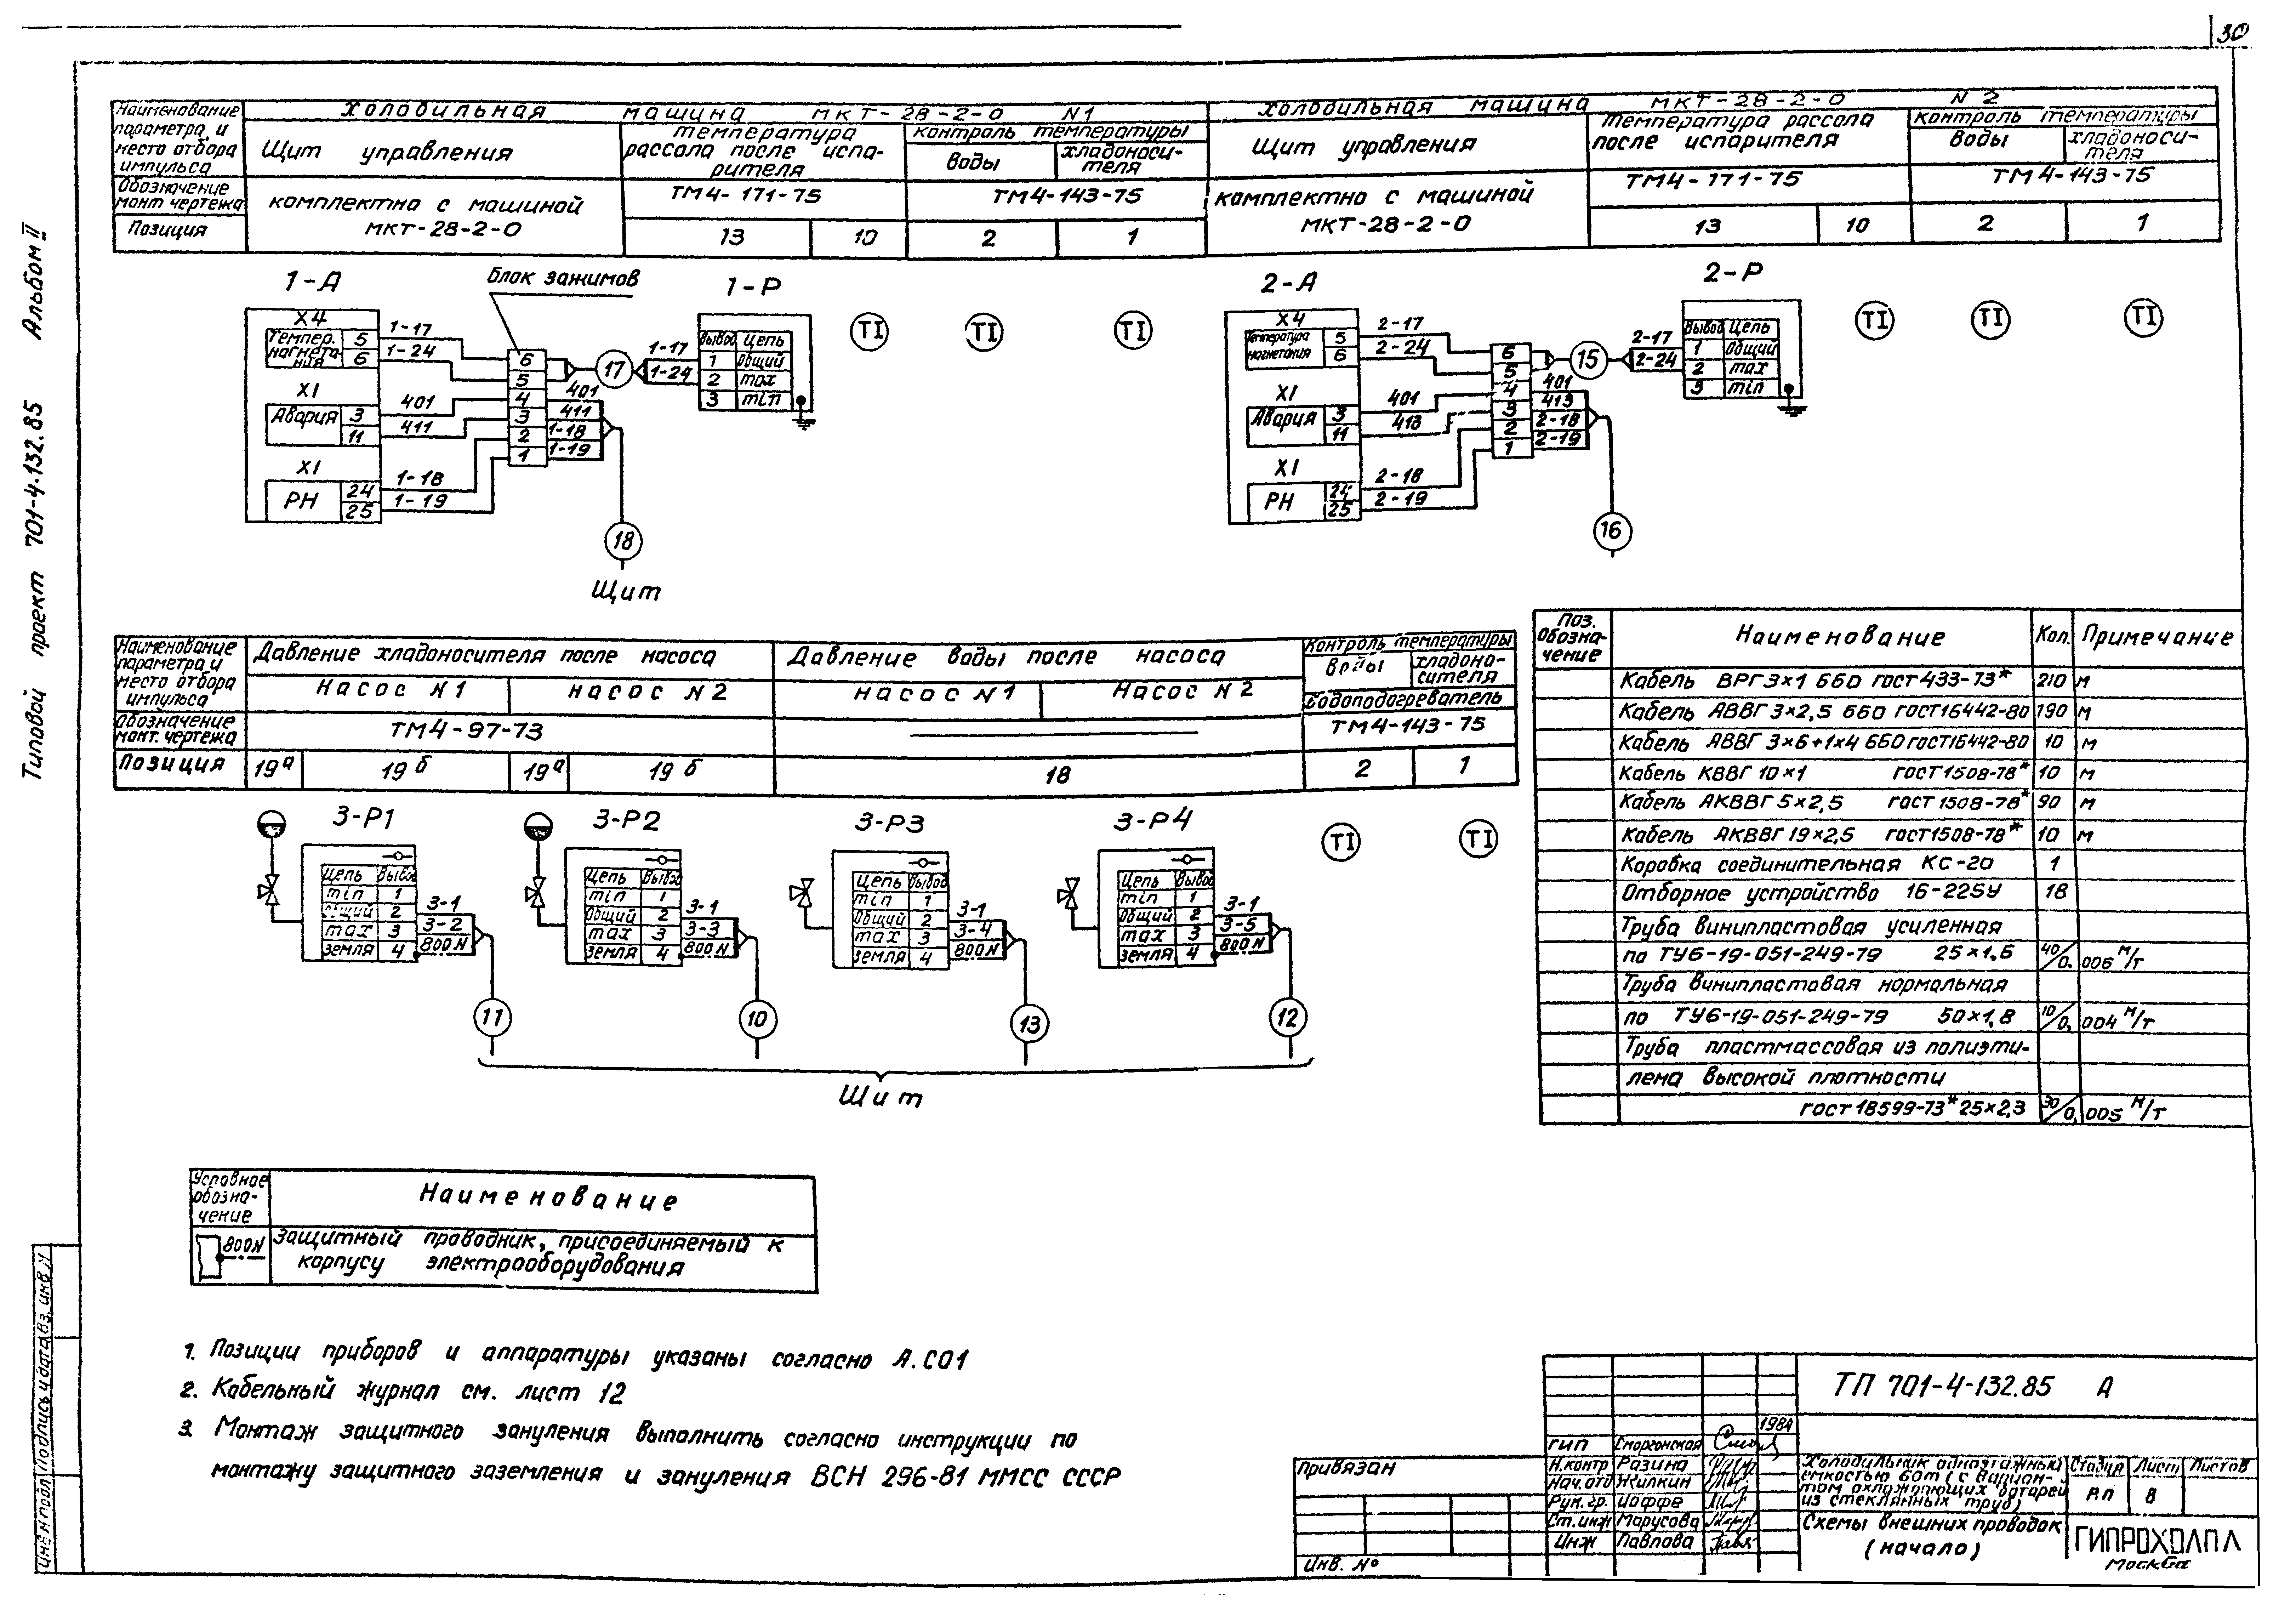 30
Типовой проект 701-4-132.85 Альбом II
Наименование параметра и место отбора импульса
Холодильная машина МКТ-28-2-0 N1
Холодильная машина МКТ-28-2-0 N2
Щит управления
Температура рассола после испарителя
Контроль температуры
воды
хладоносителя
Щит управления
Температура рассола после испарителя
Контроль температуры
воды
хладоносителя
Обозначение монт чертежа
комплектно с машиной МКТ-28-2-0
ТМ4-171-75
ТМ4-143-75
комплектно с машиной МКТ-28-2-0
ТМ4-171-75
ТМ4-143-75
Позиция
13
10
2
1
13
10
2
1
1-А
Блок зажимов
1-Р
X4
Темпер. нагнетания
5
6
1-17
1-24
X1
Авария
3
11
401
411
X1
РН
24
25
1-18
1-19
6
5
4
3
2
1
17
401
411
1-18
1-19
18
Щит
1-17
1-24
Вывод Цепь
1 Общий
2 max
3 min
TI
TI
TI
2-А
2-Р
X4
Температура нагнетания
5
6
2-17
2-24
X1
Авария
3
11
401
413
X1
РН
24
25
2-18
2-19
6
5
4
3
2
1
15
401
413
2-18
2-19
16
2-17
2-24
Вывод Цепь
1 Общий
2 max
3 min
TI
TI
TI
Наименование параметра и место отбора импульса
Давление хладоносителя после насоса
Давление воды после насоса
Контроль температуры
воды
хладоносителя
Насос N1
насос N2
насос N1
Насос N2
Водоподогреватель
Обозначение монт. чертежа
ТМ4-97-73
ТМ4-143-75
Позиция
19а
19б
19а
19б
18
2
1
3-Р1
Цепь Вывод
min 1
Общий 2
max 3
земля 4
3-1
3-2
800N
11
3-Р2
Цепь Вывод
min 1
Общий 2
max 3
земля 4
3-1
3-3
800N
10
3-Р3
Цепь Вывод
min 1
Общий 2
max 3
земля 4
3-1
3-4
800N
13
3-Р4
Цепь Вывод
min 1
Общий 2
max 3
земля 4
3-1
3-5
800N
12
TI
TI
Щит
Поз. Обозначение
Наименование
Кол.
Примечание
Кабель ВРГ 3×1 660 гост 433-73* 210 м
Кабель АВВГ 3×2,5 660 гост 16442-80 190 м
Кабель АВВГ 3×6+1×4 660 гост 16442-80 10 м
Кабель КВВГ 10×1 гост 1508-78* 10 м
Кабель АКВВГ 5×2,5 гост 1508-78* 90 м
Кабель АКВВГ 19×2,5 гост 1508-78* 10 м
Коробка соединительная КС-20 1
Отборное устройство 16-225У 18
Труба винипластовая усиленная
по ТУ6-19-051-249-79 25×1,6 40/0,006 м/т
Труба винипластовая нормальная
по ТУ6-19-051-249-79 50×1,8 10/0,004 м/т
Труба пластмассовая из полиэти-
лена высокой плотности
гост 18599-73* 25×2,3 30/0,005 м/т
Условное обозна-чение
Наименование
800N
Защитный проводник, присоединяемый к
корпусу электрооборудования
1. Позиции приборов и аппаратуры указаны согласно А.СО1
2. Кабельный журнал см. лист 12
3. Монтаж защитного зануления выполнить согласно инструкции по
монтажу защитного заземления и зануления ВСН 296-81 ММСС СССР
Привязан
Инв. №
ТП 701-4-132.85 А
1984
ГИП Сморгонская
Н.контр Разина
Нач.отд Жилкин
Рук.гр. Иоффе
Ст.инж Марусова
Инж Павлова
Холодильник одноэтажный
емкостью 60т (с вариан-
том охлаждающих батарей
из стеклянных труб)
Стадия Лист Листов
РП 8
Схемы внешних проводок
(начало)
ГИПРОХОЛОД
Москва
Инв N подл Подпись и дата Вз. инв N